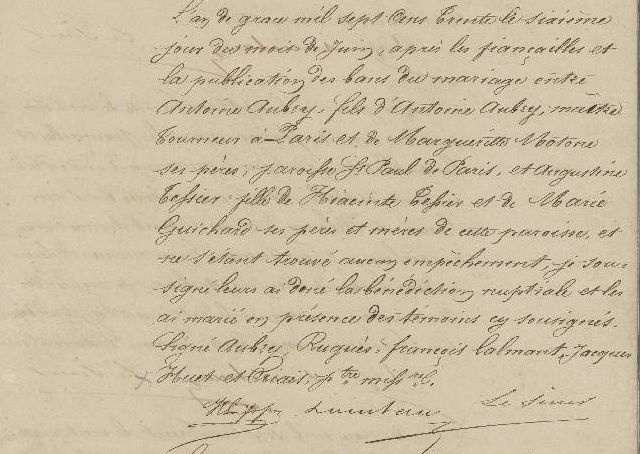 L'an de grace mil sept cens trente le sixième
jour du mois de Juin, après les fiançailles et
la publication des bans du mariage entre
Antoine Aubry, fils d'Antoine Aubry, maitre
tourneur à Paris et de Margueritte Motone
ses pères, paroisse St Paul de Paris, et Augustine
Tessier fille de Hiacinte Tessier et de Marie
Guichard ses pères et mères de cette paroisse, et
ne s'étant trouvé aucun empêchement, je sou-
signé leurs ai doné la bénédiction nuptiale et les
ai marié en présence des temoins cy sousignés.
Signé Aubry, Rugués, françois Calmant, Jacques
Huet et Criais, ptre miss re